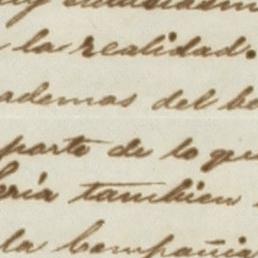 la realidad.
ademas del
parte de lo que
tambien
la Compañia